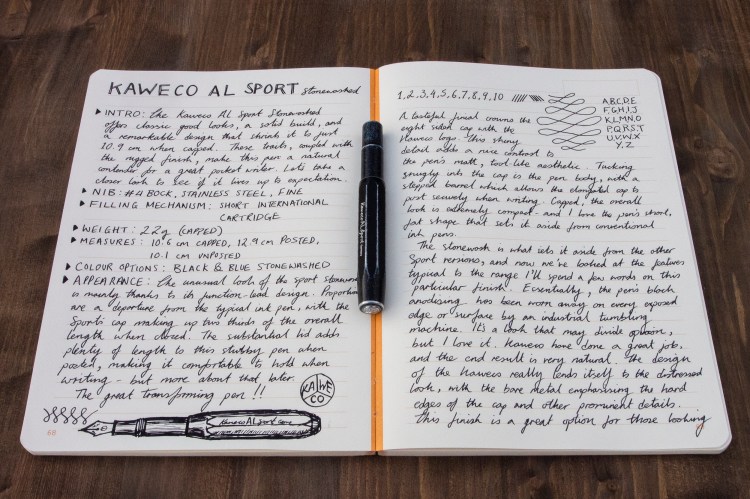 KAWECO AL SPORT Stonewashed
INTRO: The Kaweco AL Sport Stonewashed
offers classic good looks, a solid build, and
a remarkable design that shrinks it to just
10.9 cm when capped. These traits, coupled with
the rugged finish, make this pen a natural
contender for a great pocket writer. Let's take a
closer look to see if it lives up to expectation.
NIB: #4 BOCK, STAINLESS STEEL, FINE
FILLING MECHANISM: SHORT INTERNATIONAL
CARTRIDGE
WEIGHT: 22g (CAPPED)
MEASURES: 10.6 cm CAPPED, 12.9 cm POSTED,
10.1 cm UNPOSTED
COLOUR OPTIONS: BLACK & BLUE STONEWASHED
APPEARANCE: The unusual look of the sport stonewash
is mainly thanks to its function-lead design. Proportions
are a departure from the typical ink pen, with the
Sport's cap making up two thirds of the overall
length when closed. The substantial lid adds
plenty of length to this stubby pen when
posted, making it comfortable to hold when
writing - but more about that later.
The great transforming pen!!
KA WE CO
Kaweco AL Sport
68
Kaweco AL Sport
1,2,3,4,5,6,7,8,9,10
A,B,C,D,E
F,G,H,I,J
K,L,M,N,O
P,Q,R,S,T
U,V,W,X
Y,Z
A tasteful finial crowns the
eight sided cap with the
Kaweco logo. This shiny
detail adds a nice contrast to
the pen's matt, tool-like aesthetic. Tucking
snugly into the cap is the pen body, with a
stepped barrel which allows the elongated cap to
post securely when writing. Capped, the overall
look is extremely compact - and I love the pen's short,
fat shape that sets it aside from conventional
ink pens.
The stonewash is what sets it aside from the other
Sport versions, and now we've looked at the features
typical to the range I'll spend a few words on this
particular finish. Essentially, the pen's black
anodising has been worn away on every exposed
edge or surface by an industrial tumbling
machine. It's a look that may divide opinion,
but I love it. Kaweco have done a great job,
and the end result is very natural. The design
of the Kaweco really lends itself to the distressed
look, with the bare metal emphasising the hard
edges of the cap and other prominent details.
This finish is a great option for those looking